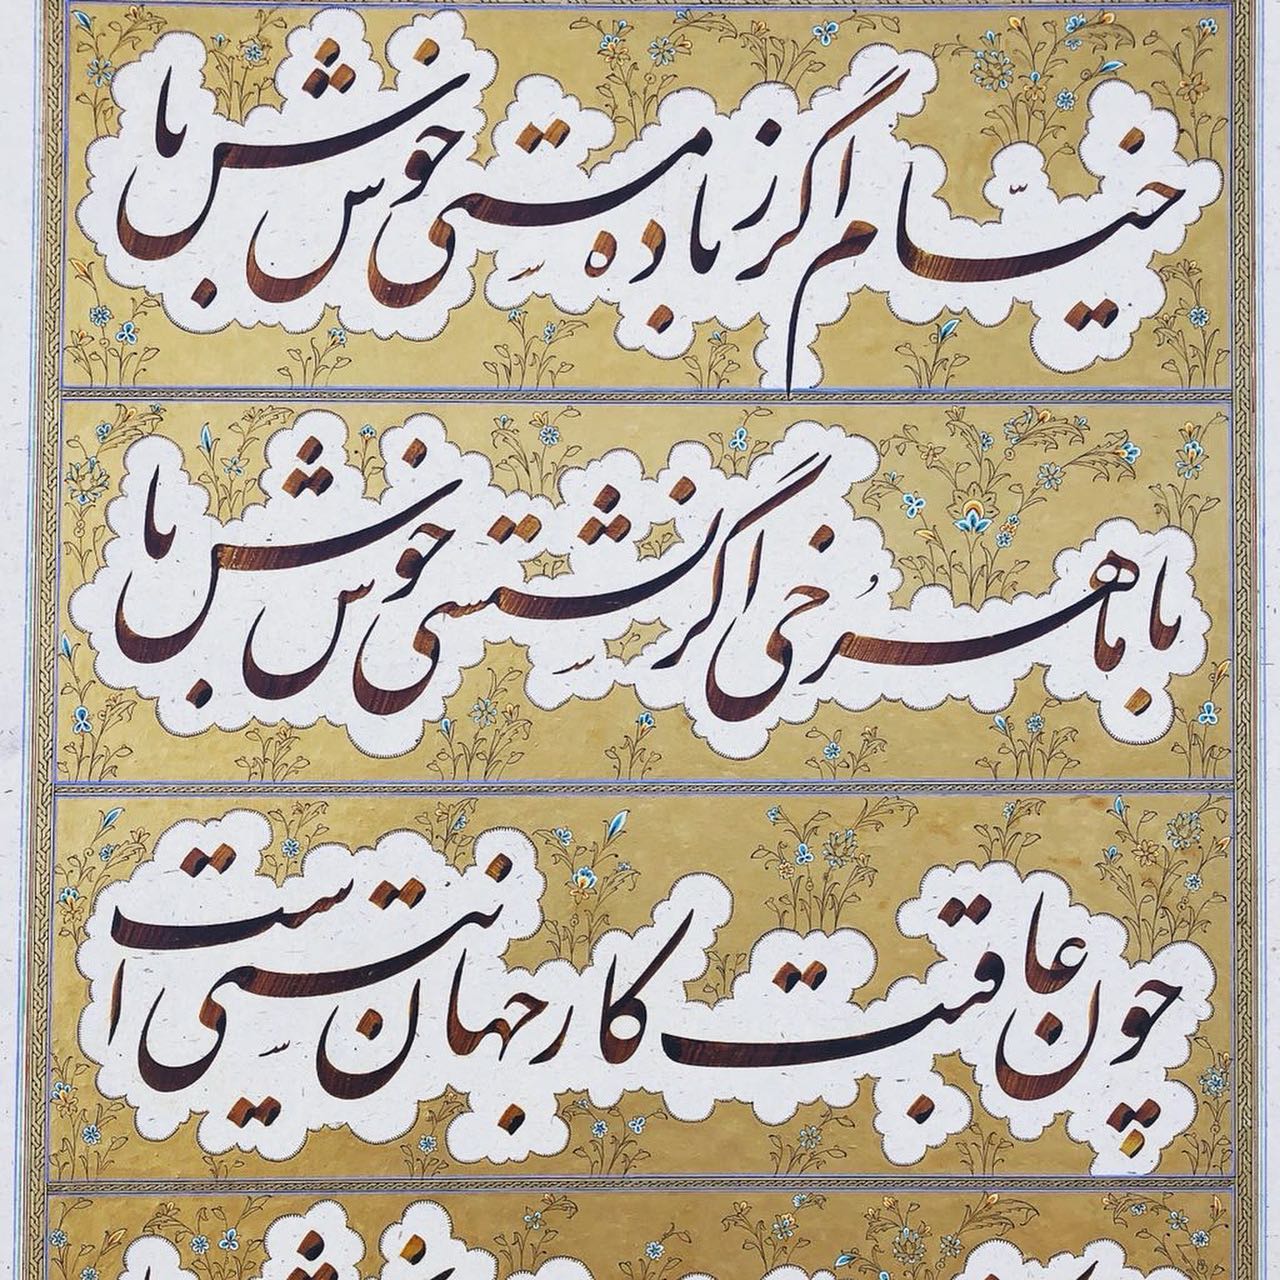 خیّام اگر ز باده مستی خوش باش
با ماهرُخی اگر نشستی خوش باش
چون عاقبت کار جهان نیستی است